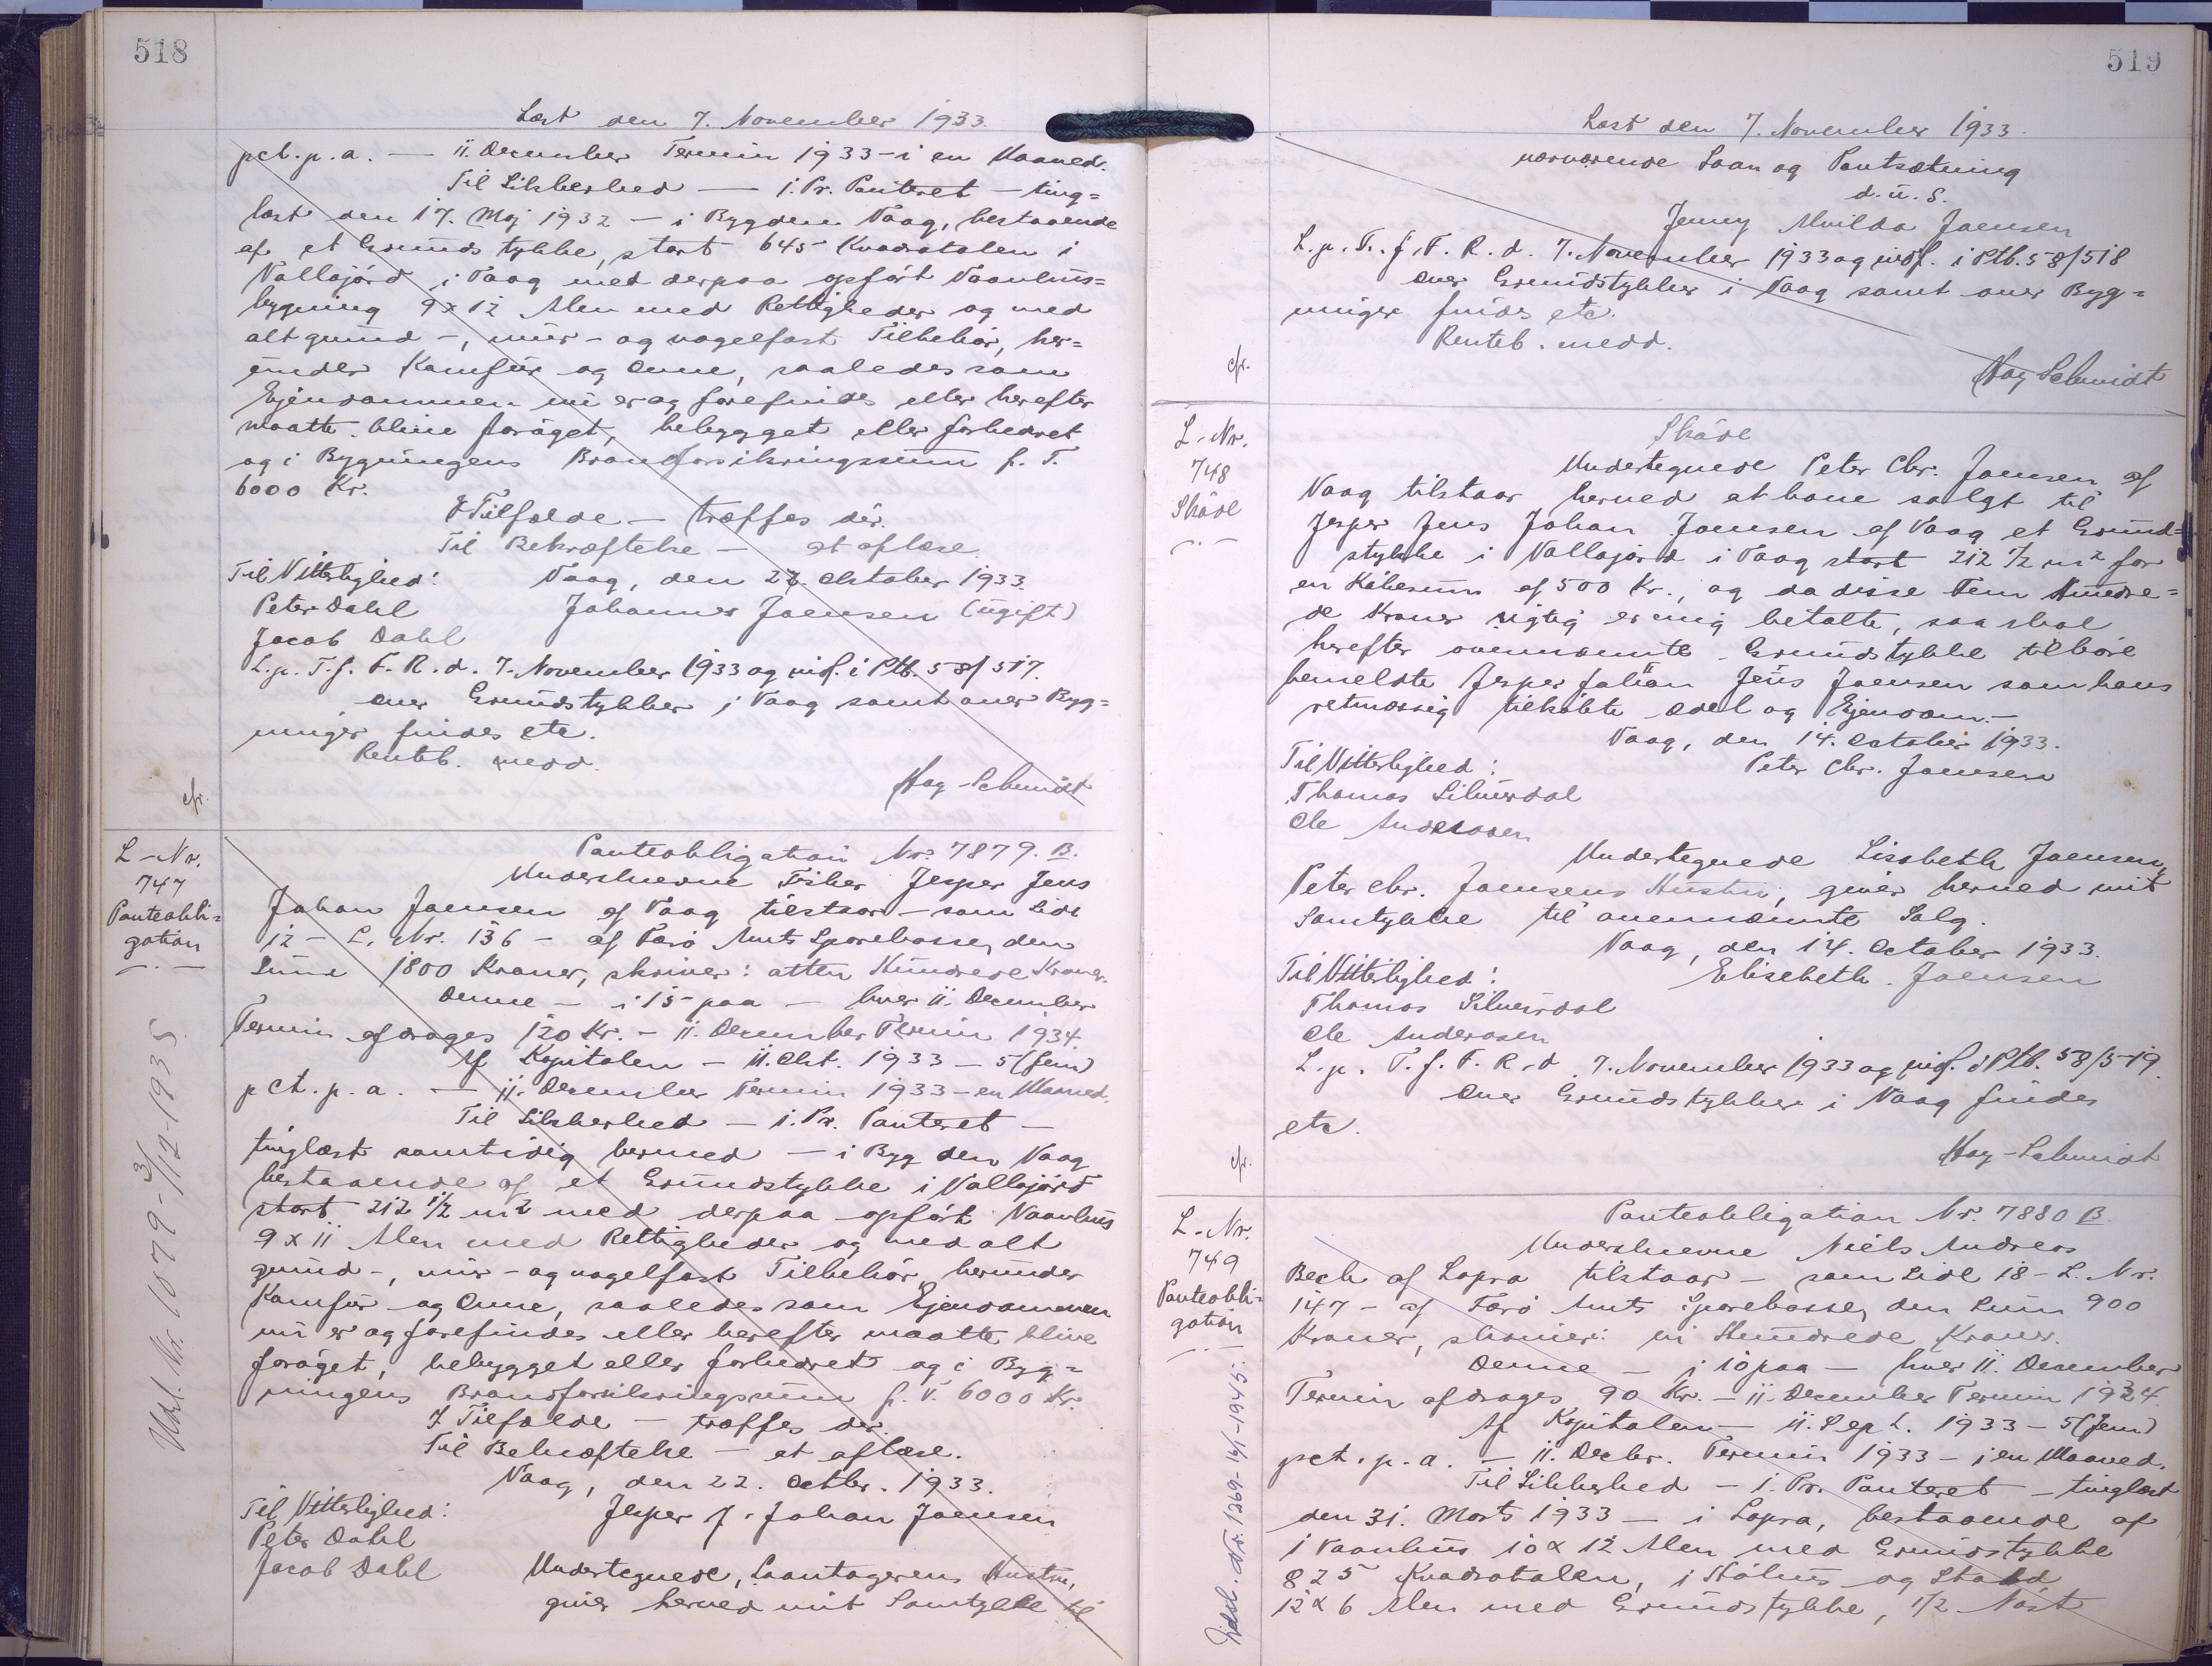 518
Læst den 7. November 1933.
pct. p. a. — 11. December Termin 1933 - i en Maaned.
Til Sikkerhed — 1. Pr. Panteret — ting=
læst den 17. Maj 1932 — i Bygden Vaag, bestaaende
af et Grundstykke, stort 645 Kvadratalen i
Vallajørd i Vaag med derpaa opført Vaanhus=
bygning 9 x 12 Alen med Rettigheder og med
alt grund-, mur- og nagelfast Tilbehør, her=
under Komfur og Ovne, saaledes som
Ejendommen nu er og forefindes eller herefter
maatte blive forøget, bebygget eller forbedret
og i Bygningens Brandforsikringssum p. T.
6000 Kr.
I Tilfælde — træffes der.
Til Bekræftelse — at aflæse.
Til Vitterlighed: Vaag, den 27. Oktober 1933.
Peter Dahl Johannes Joensen (ugift)
Jacob Dahl
L. p. T. f. F. R. d. 7. November 1933 og indf. i Ptb. 58/517.
over Grundstykker i Vaag samt over Byg=
ninger findes etc.
Renteb. medd.
Hag-Schmidt
cfr.
L-Nr.
747
Panteobli=
gation
Udsl. Nr. 1079 - 3/12-1935.
Panteobligation Nr. 7879. B.
Underskrevne Fisker Jesper Jens
Johan Joensen af Vaag tilstaar — som Lidt
12 - L. Nr. 136 - af Færø Amts Sparekasse, den
Sum 1800 Kroner, skriver: atten Hundrede Kroner.
Denne — i 15 paa — hver 11. December
Termin afdrages 120 Kr. - 11. December Termin 1934.
Af Kapitalen — 11. Okt. 1933 — 5 (fem)
pct. p. a. — 11. December Termin 1933 - en Maaned.
Til Sikkerhed — 1. Pr. Panteret —
tinglæst samtidig hermed — i Bygden Vaag
bestaaende af et Grundstykke i Vallajørd
stort 212 1/2 m² med derpaa opført Vaanhus
9 x 11 Alen med Rettigheder og med alt
grund-, mur- og nagelfast Tilbehør, herunder
Komfur og Ovne, saaledes som Ejendommen
nu er og forefindes eller herefter maatte blive
forøget, bebygget eller forbedret og i Byg=
ningens Brandforsikringssum p. T. 6000 Kr.
I Tilfælde — træffes der.
Til Bekræftelse — at aflæse.
Vaag, den 22. Octbr. 1933.
Til Vitterlighed: Jesper J. Johan Joensen
Peter Dahl
Jacob Dahl Undertegnede, Laantagerens Hustru,
giver herved mit Samtykke til
519
Læst den 7. November 1933.
nærværende Laan og Pantsætning
d. u. S.
Jenny Mvilda Joensen
L. p. T. f. F. R. d. 7. November 1933 og indf. i Ptb. 58/518
over Grundstykker i Vaag samt over Byg=
ninger findes etc.
Renteb. medd.
cfr.
Hag Schmidt
L-Nr.
748
Skøde
Skøde
Undertegnede Peter Chr. Joensen af
Vaag tilstaar herved at have solgt til
Jesper Jens Johan Joensen af Vaag et Grund=
stykke i Vallajørd i Vaag stort 212 1/2 m² for
en Købesum af 500 Kr., og da disse Fem Hundre=
de Kroner rigtig er mig betalte, saa skal
herefter ovennævnte Grundstykke tilhøre
bemeldte Jesper Johan Jens Joensen som hans
retmæssig tilkøbte Odel og Ejendom.—
Vaag, den 14. October 1933.
Til Vitterlighed: Peter Chr. Joensen
Thomas Silverdal
Ole Anderasen
Undertegnede Lisbeth Joensen,
Peter Chr. Joensens Hustru, giver herved mit
Samtykke til ovennævnte Salg.
Vaag, den 14. October 1933.
Til Vitterlighed: Elisebeth Joensen
Thomas Silverdal
Ole Anderasen
L. p. T. f. F. R. d. 7. November 1933 og indf. i Ptb. 58/519.
Over Grundstykker i Vaag findes
etc.
Hag-Schmidt
cfr.
L-Nr.
749
Panteobli=
gation
Udsl. Nr. 1269-16/1-1945.
Panteobligation Nr. 7880 B
Underskrevne Niels Andreas
Bech af Lopra tilstaar — som Lidt 18 - L. Nr.
147 - af Færø Amts Sparekasse, den Sum 900
Kroner, skriver: ni Hundrede Kroner.
Denne — i 10 paa — hver 11. December
Termin afdrages 90 Kr. - 11. December Termin 1934.
Af Kapitalen — 11. Sept. 1933 — 5 (fem)
pct. p. a. — 11. Decbr. Termin 1933 — i en Maaned.
Til Sikkerhed — 1. Pr. Panteret — tinglæst
den 31. Marts 1933 — i Lopra, bestaaende af
1 Vaanhus 10 x 12 Alen med Grundstykke
825 Kvadratalen, 1 Høhus og Stald
12 x 6 Alen med Grundstykke, 1/2 Nøst